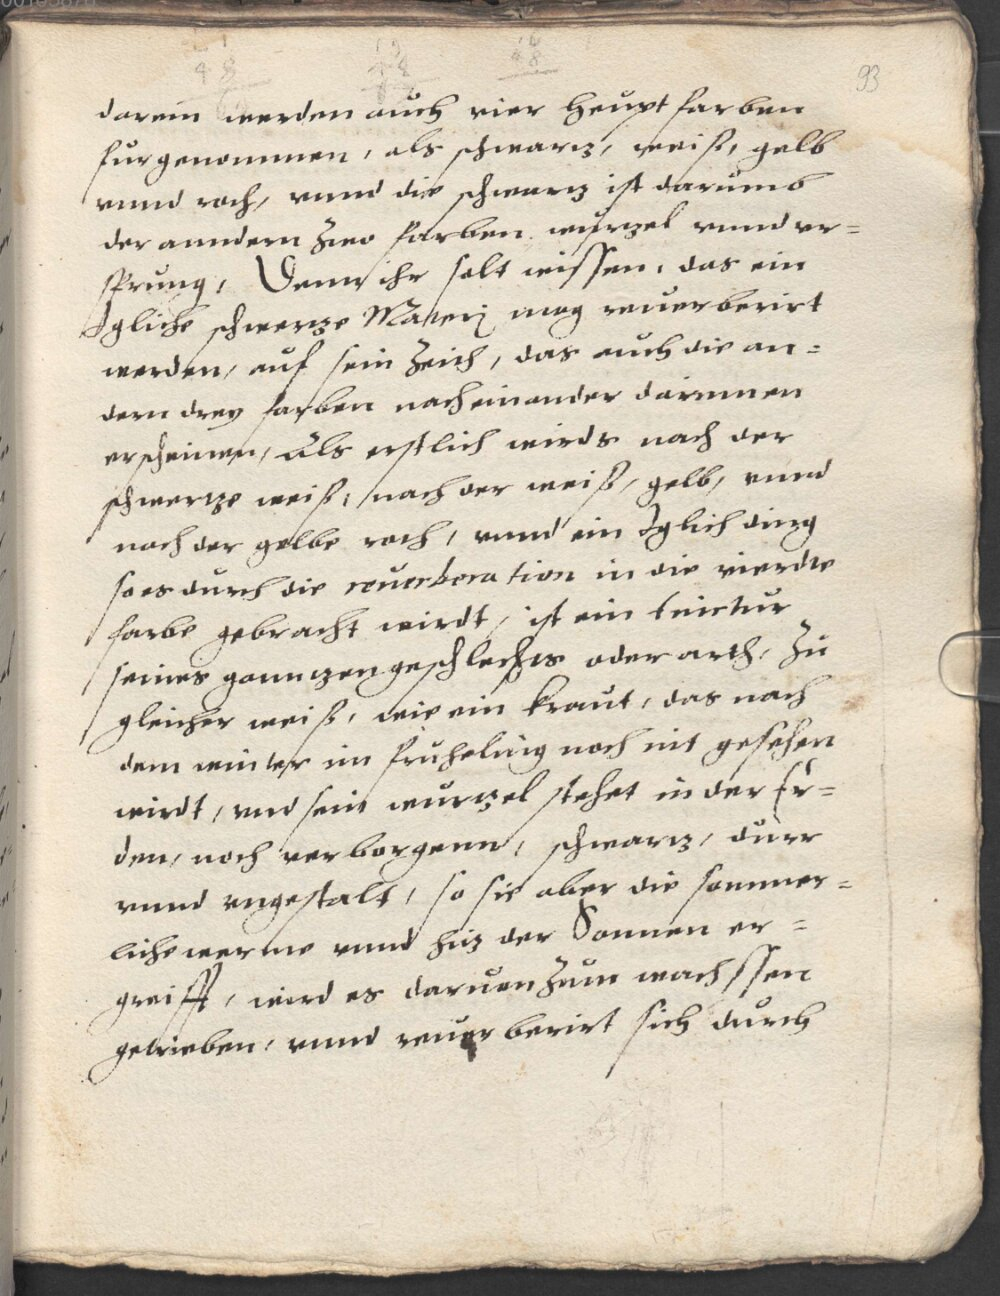 93
darein werden auch vier heupt farben
furgenommen, als schwartz, weiß, gelb
vnnd roth, vnnd die schwartz ist darumb
der anndern zwo farben wurzel vnnd vr=
sprung, Denn ihr solt wissen, das ein
Igliche schwertze Materj mag reuerberirt
werden, auf sein Zeith, das auch die an=
dern drey farben nacheinander darinnen
erscheinen, Als erstlich wirds nach der
schwertze weiß, nach der weiß, gelb, vnnd
nach der gelbe roth, vnnd ein Iglich ding
so es durch die reuerberation in die vierdte
farbe gebracht wirdt, ist ein tinctur
seines ganntzen geschlechts oder arth, Zu
gleicher weiß, wie ein kraut, das nach
dem winter im fruheling noch nit gesehen
wirdt, vnd sein wurtzel stehet in der Er=
den, noch verborgenn, schwartz, durr
vnnd vngestalt, so sie aber die sommer=
liche werme vnnd hitz der Sonnen er=
greifft, wird es daruon Zum wachssen
getrieben, vnnd reuerberirt sich durch